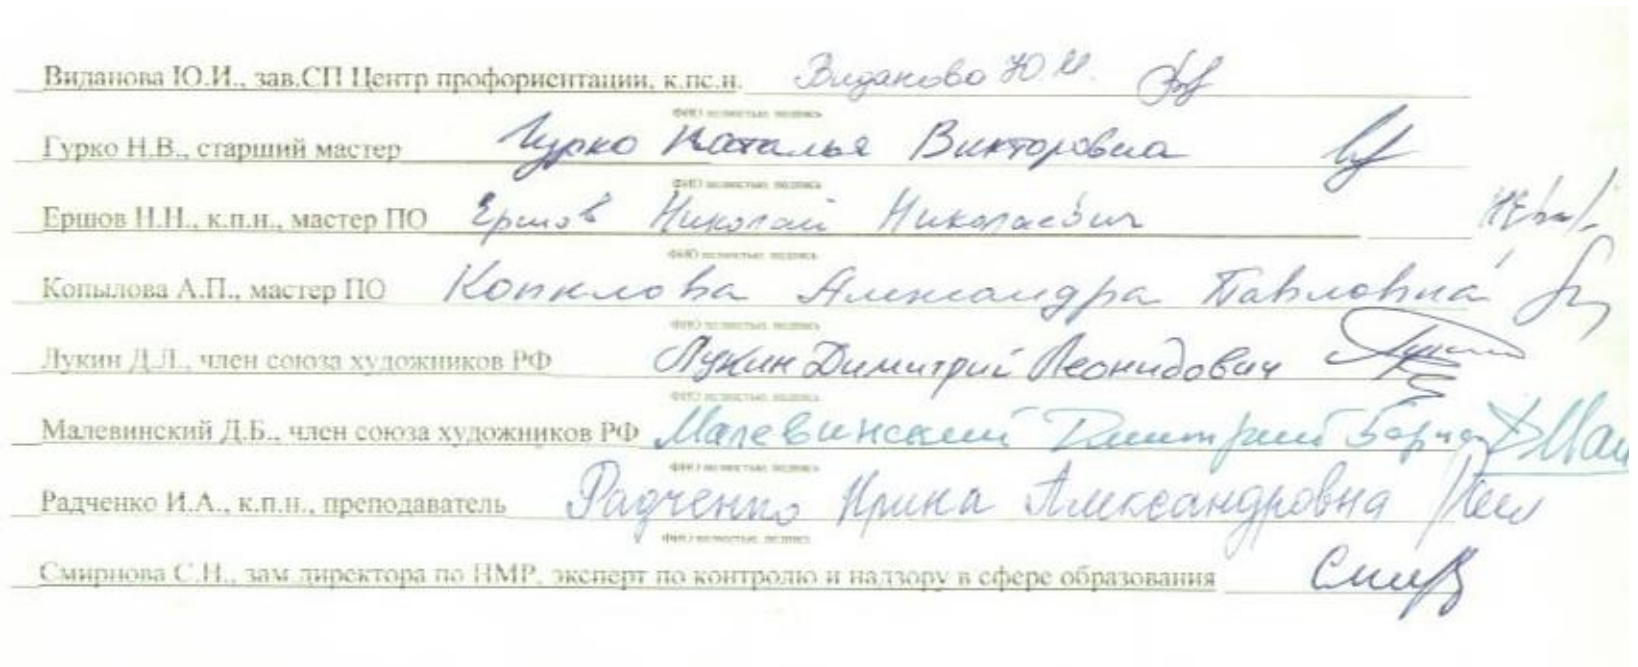 Виданова Ю.И., зав.СП Центр профориентации, к.пс.н. Виданова Ю.И.
ФИО полностью, подпись
Гурко Н.В., старший мастер Гурко Наталья Викторовна
ФИО полностью, подпись
Ершов Н.Н., к.п.н., мастер ПО Ершов Николай Николаевич
ФИО полностью, подпись
Копылова А.П., мастер ПО Копылова Александра Павловна
ФИО полностью, подпись
Лукин Д.Л., член союза художников РФ Лукин Димитрий Леонидович
ФИО полностью, подпись
Малевинский Д.Б., член союза художников РФ Малевинский Дмитрий
ФИО полностью, подпись
Радченко И.А., к.п.н., преподаватель Радченко Ирина Александровна
ФИО полностью, подпись
Смирнова С.Н., зам директора по НМР, эксперт по контролю и надзору в сфере образования